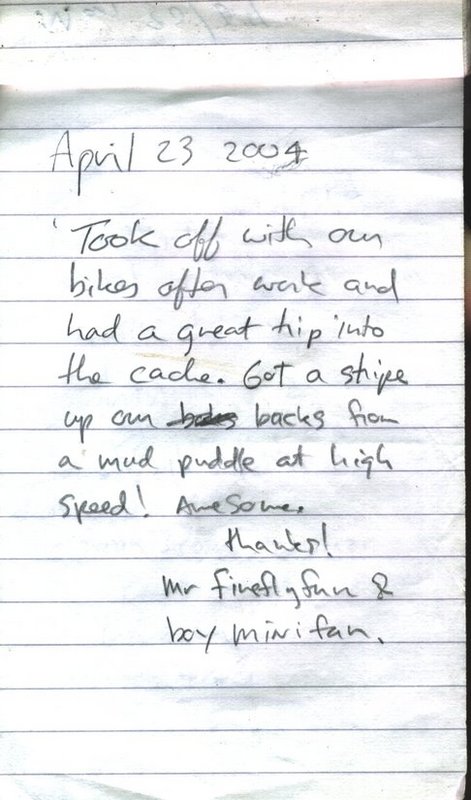 April 23 2004
Took off with our
bikes after work and
had a great trip into
the cache. Got a stripe
up our backs from
a mud puddle at high
speed! Awesome.
thanks!
Mr Fireflyfan &
boy minifan.